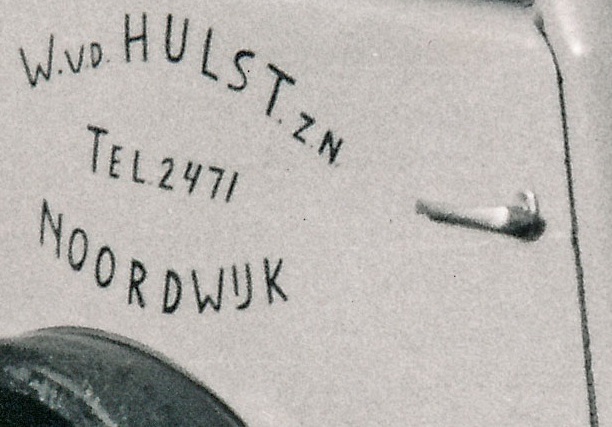 W.V.D. HULST. ZN
TEL. 2471
NOORDWIJK